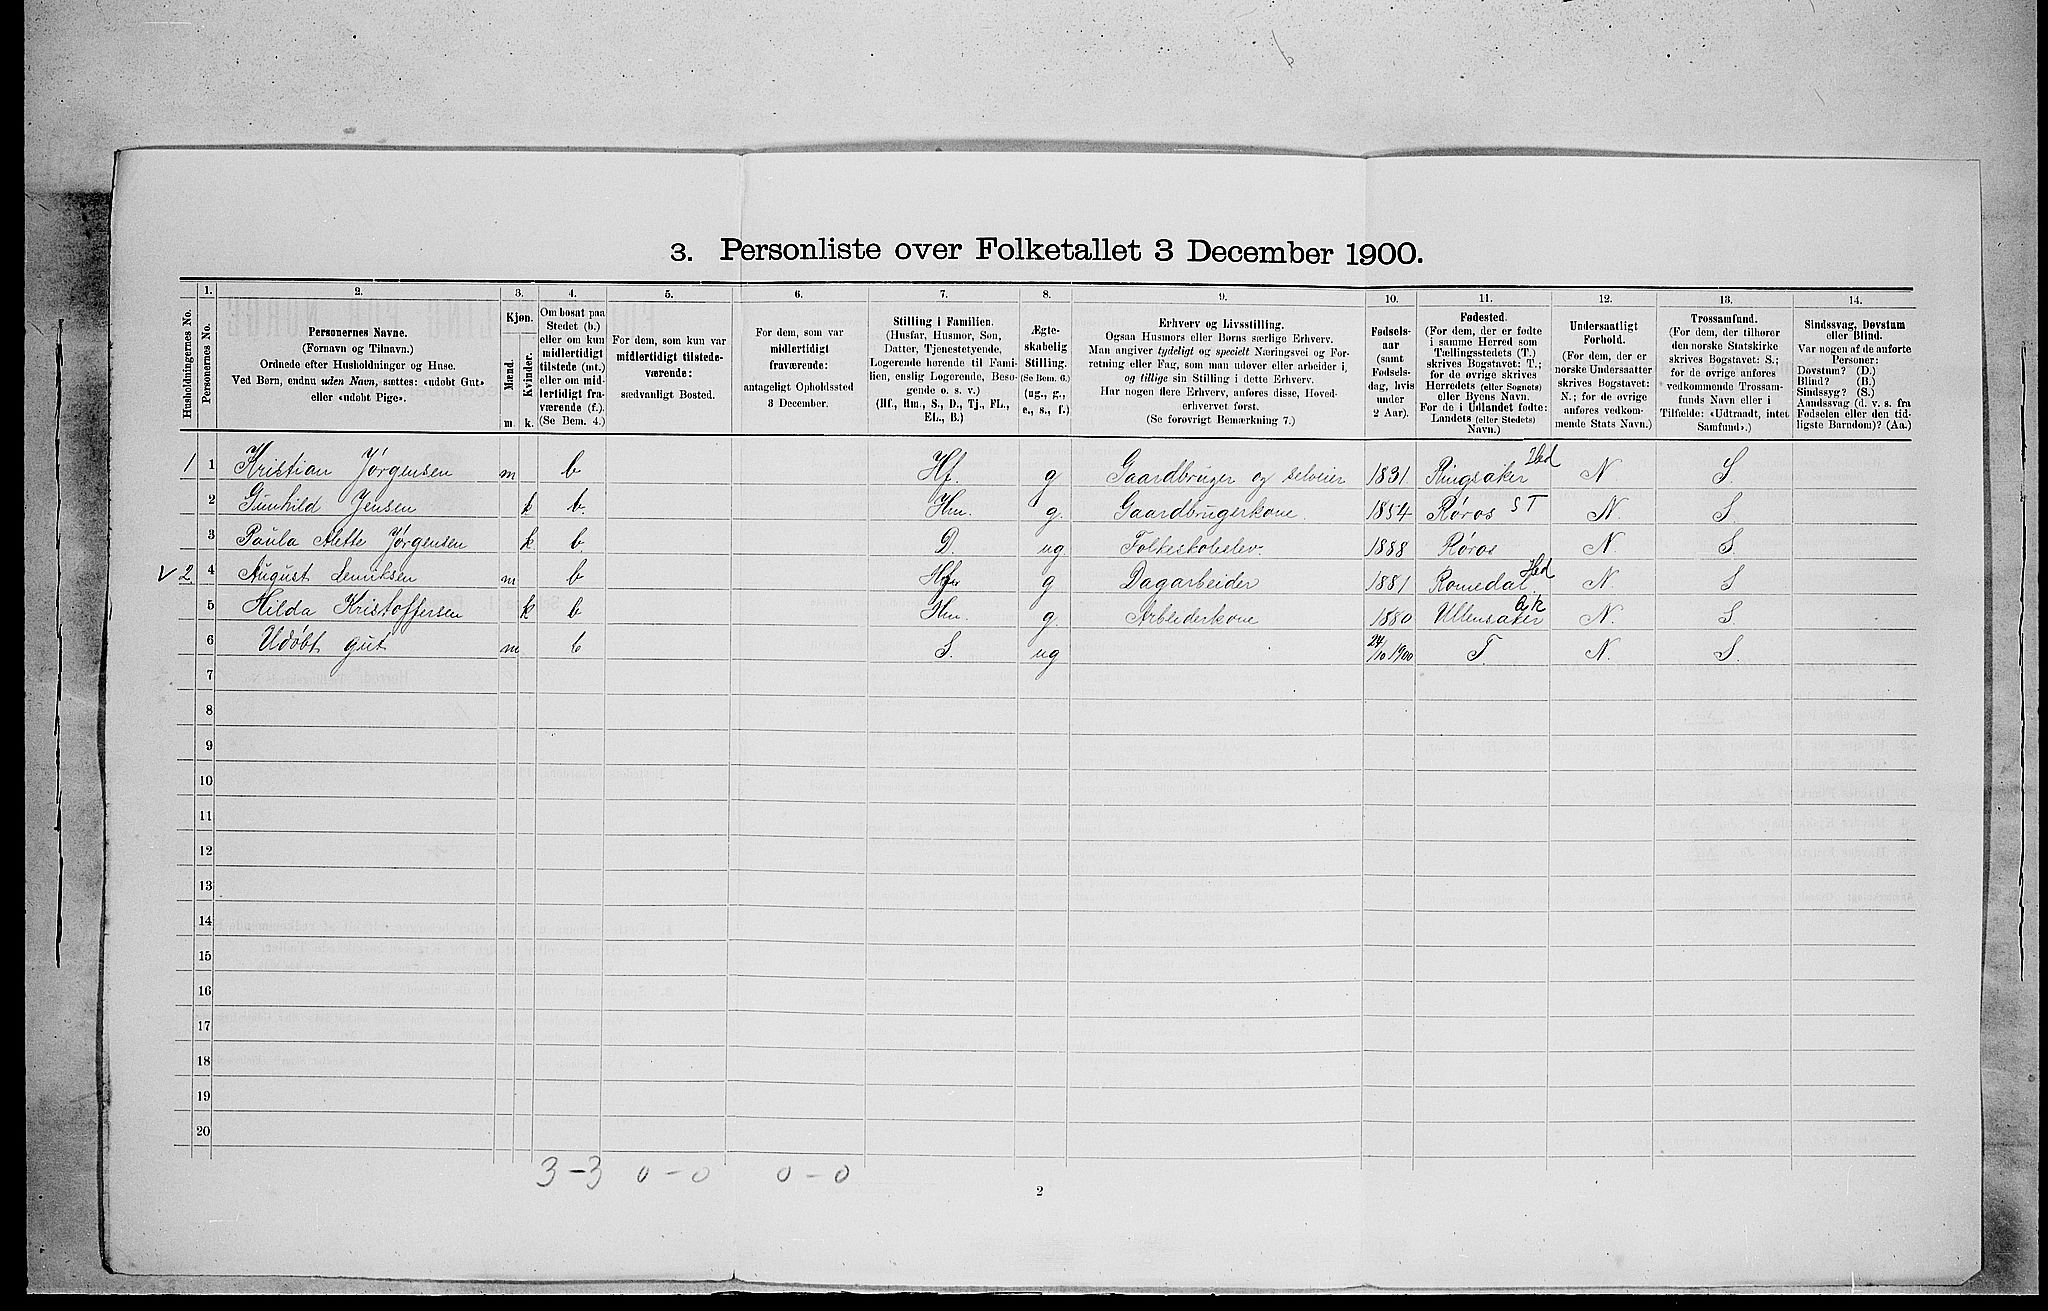 3. Personliste over Folketallet 3 December 1900.
Husholdningernes No.
1.
Personernes No.
2.
Personernes Navne.
(Fornavn og Tilnavn.)
Ordnede efter Husholdninger og Huse.
Ved Børn, endnu uden Navn, sættes: «udøbt Gut»
eller «udøbt Pige».
3.
Kjøn.
Mænd.
Kvinder.
m. k.
4.
Om bosat paa
Stedet (b.)
eller om kun
midlertidigt
tilstede (mt.)
eller om mid-
lertidigt fra-
værende (f.).
(Se Bem. 4.)
5.
For dem, som kun var
midlertidigt tilstede-
værende:
sædvanligt Bosted.
6.
For dem, som var
midlertidigt
fraværende:
antageligt Opholdssted
3 December.
7.
Stilling i Familien.
(Husfar, Husmor, Søn,
Datter, Tjenestetyende,
Logerende hørende til Fami-
lien, enslig Logerende, Besø-
gende o. s. v.)
(Hf., Hm., S., D., Tj., FL.,
El., B.)
8.
Ægte-
skabelig
Stilling.
(Se Bem. 6.)
(ug., g.,
e., s., f.)
9.
Erhverv og Livsstilling.
Ogsaa Husmors eller Børns særlige Erhverv.
Man angiver tydeligt og specielt Næringsvei og For-
retning eller Fag, som man udøver eller arbeider i,
og tillige sin Stilling i dette Erhverv.
Har nogen flere Erhverv, anføres disse, Hoved-
erhvervet først.
(Se forøvrigt Bemærkning 7.)
10.
Fødsels-
aar
(samt
Fødsels-
dag, hvis
under
2 Aar).
11.
Fødested.
(For dem, der er fødte
i samme Herred som
Tællingsstedets (T.)
skrives Bogstavet: T.;
for de øvrige skrives
Herredets (eller Sognets)
eller Byens Navn.
For de i Udlandet fødte:
Landets (eller Stedets)
Navn.)
12.
Undersaatligt
Forhold.
(For dem, der er
norske Undersaatter
skrives Bogstavet:
N.; for de øvrige
anføres vedkom-
mende Stats Navn.)
13.
Trossamfund.
(For dem, der tilhører
den norske Statskirke
skrives Bogstavet: S.;
for de øvrige anføres
vedkommende Trossam-
funds Navn eller i
Tilfælde: «Udtraadt, intet
Samfund».)
14.
Sindssvag, Døvstum
eller Blind.
Var nogen af de anførte
Personer:
Døvstum? (D.)
Blind? (B.)
Sindssyg? (S.)
Aandssvag (d. v. s. fra
Fødselen eller den tid-
ligste Barndom)? (Aa.)
1 1 Kristian Jørgensen m b Hf. g Gaardbruger og selveier 1831 Ringsaker Hed N S
2 Gunhild Jensen k b. Hm. g. Gaardbrugerkone 1854 Røros ST N. S.
3 Paula Alette Jørgensen k b. D. ug Folkeskolelev. 1888 Røros N. S.
V 2 4 August Henriksen m b Hf g Dagarbeider 1881 Romedal Hed N. S.
5 Hilda Kristoffersen k b Hm. g. Arbeiderkone 1880 Ullensaker Ak N. S
6 Udøbt gut m b S. ug 24/10 1900 T. N. S.
7
8
9
10
11
12
13
14
15
16
17
18
19
20
3-3 0-0 0-0
2